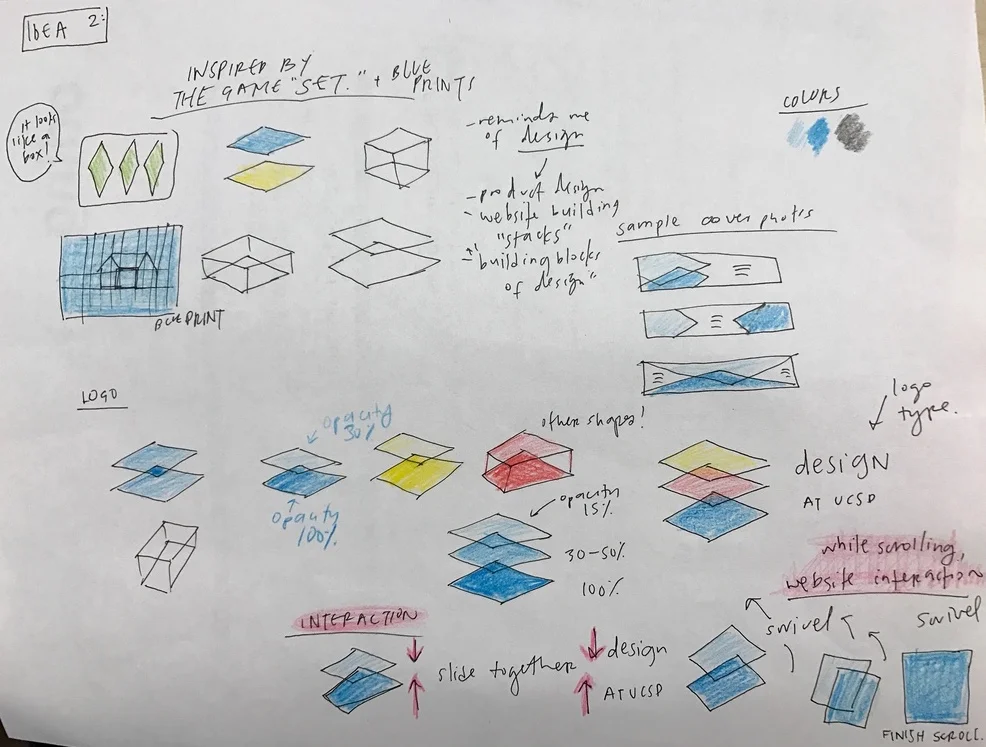 IDEA 2:
INSPIRED BY
THE GAME "SET." + BLUE
PRINTS
it looks
like a
box!
- reminds me
of design
- product design
- website building
"stacks"
- "building blocks
of design"
COLORS
sample cover photos
BLUEPRINT
LOGO
opacity
30%
opacity
100%
other shapes!
opacity
15%
30-50%
100%
logo
type.
design
AT UCSD
while scrolling,
website interaction
INTERACTION
slide together
design
AT UCSD
swivel
swivel
FINISH SCROLL.